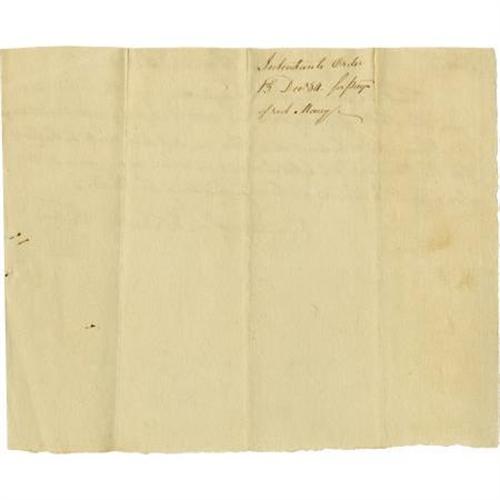 Intendants Order
13 Decr 84. for Pay
of Money